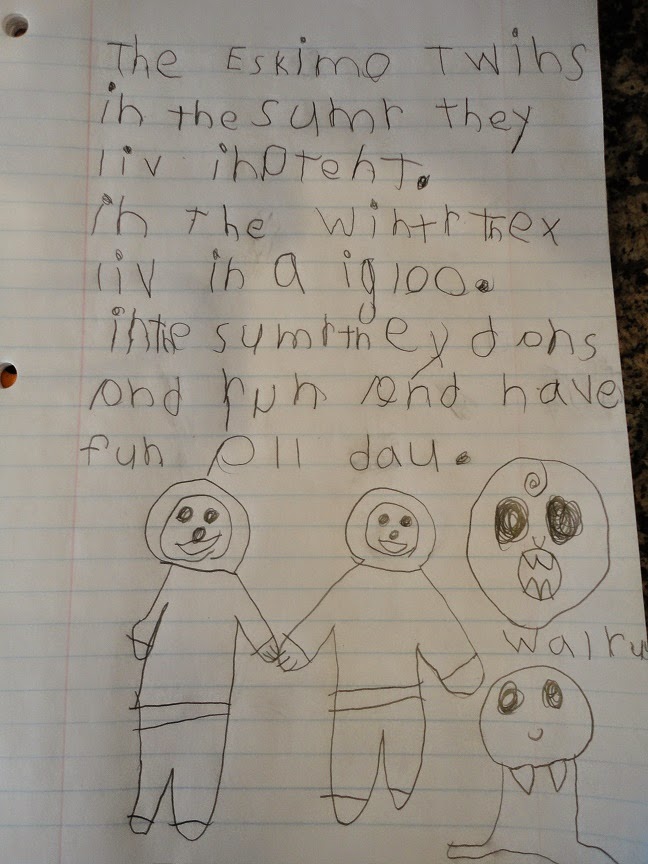 The Eskimo Twins
in the sumr they
liv in a tent.
in the wintr thex
liv in a igloo.
in the sumr they dans
and run and have
fun all day.
walru